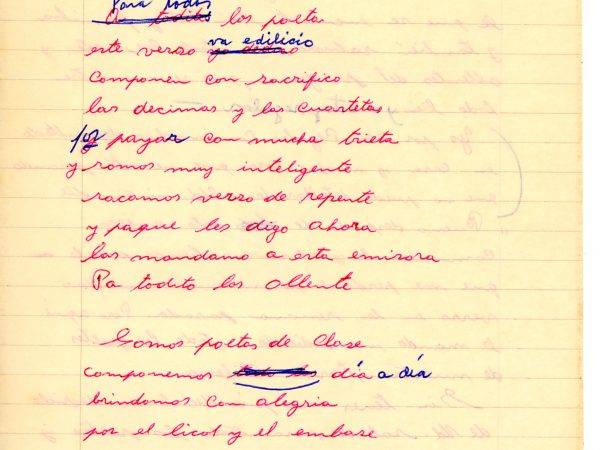 Para todos
A todites los poeta
este verso va edilicio
Componen con sacrifico
las decimas y las Cuartetas
por payar con mucha trieta
y somos muy inteligente
sacamos verso de repente
y paque les digo ahora
las mandamo a esta emisora
Pa todito los Ollente
Somos poetas de Clase
componemos día a día
brindamos con alegria
por el licol y el embase